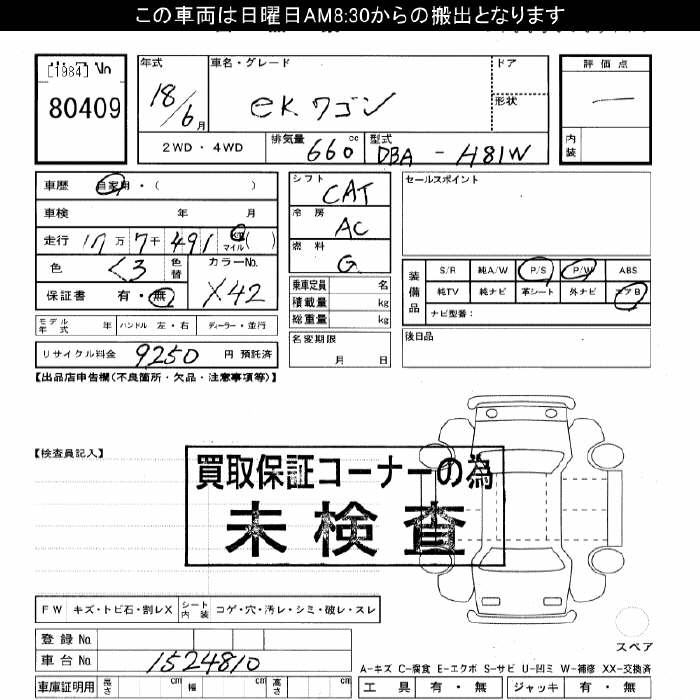 この車両は日曜日AM8:30からの搬出となります
[1984] No
80409
年式 18/6月
車名・グレード
eKワゴン
ドア
形状
2WD・4WD
排気量 660cc
型式 DBA - H81W
評価点
―
内装
車歴 自家用・( )
車検 年 月
走行 17万7千491 km マイル( )
色 くろ 色替
カラーNo. X42
保証書 有・無
モデル年式 年 ハンドル 左・右 ディーラー・並行
リサイクル料金 9250 円 預託済
シフト CAT
冷房 AC
燃料 G
乗車定員 名
積載量 kg
総重量 kg
名変期限 月 日
セールスポイント
装備品
S/R 純A/W P/S P/W ABS
純TV 純ナビ 革シート 外ナビ エアB
ナビ型番:
後日品
【出品店申告欄(不良箇所・欠品・注意事項等)】
【検査員記入】
買取保証コーナーの為
未検査
FW キズ・トビ石・割レX シート内装 コゲ・穴・汚レ・シミ・破レ・スレ
登録No.
車台No. 1524810
車庫証明用 長さ cm 幅 cm 高さ cm
スペア
A-キズ C-腐食 E-エクボ S-サビ U-凹ミ W-補修 XX-交換済
工具 有・無 ジャッキ 有・無